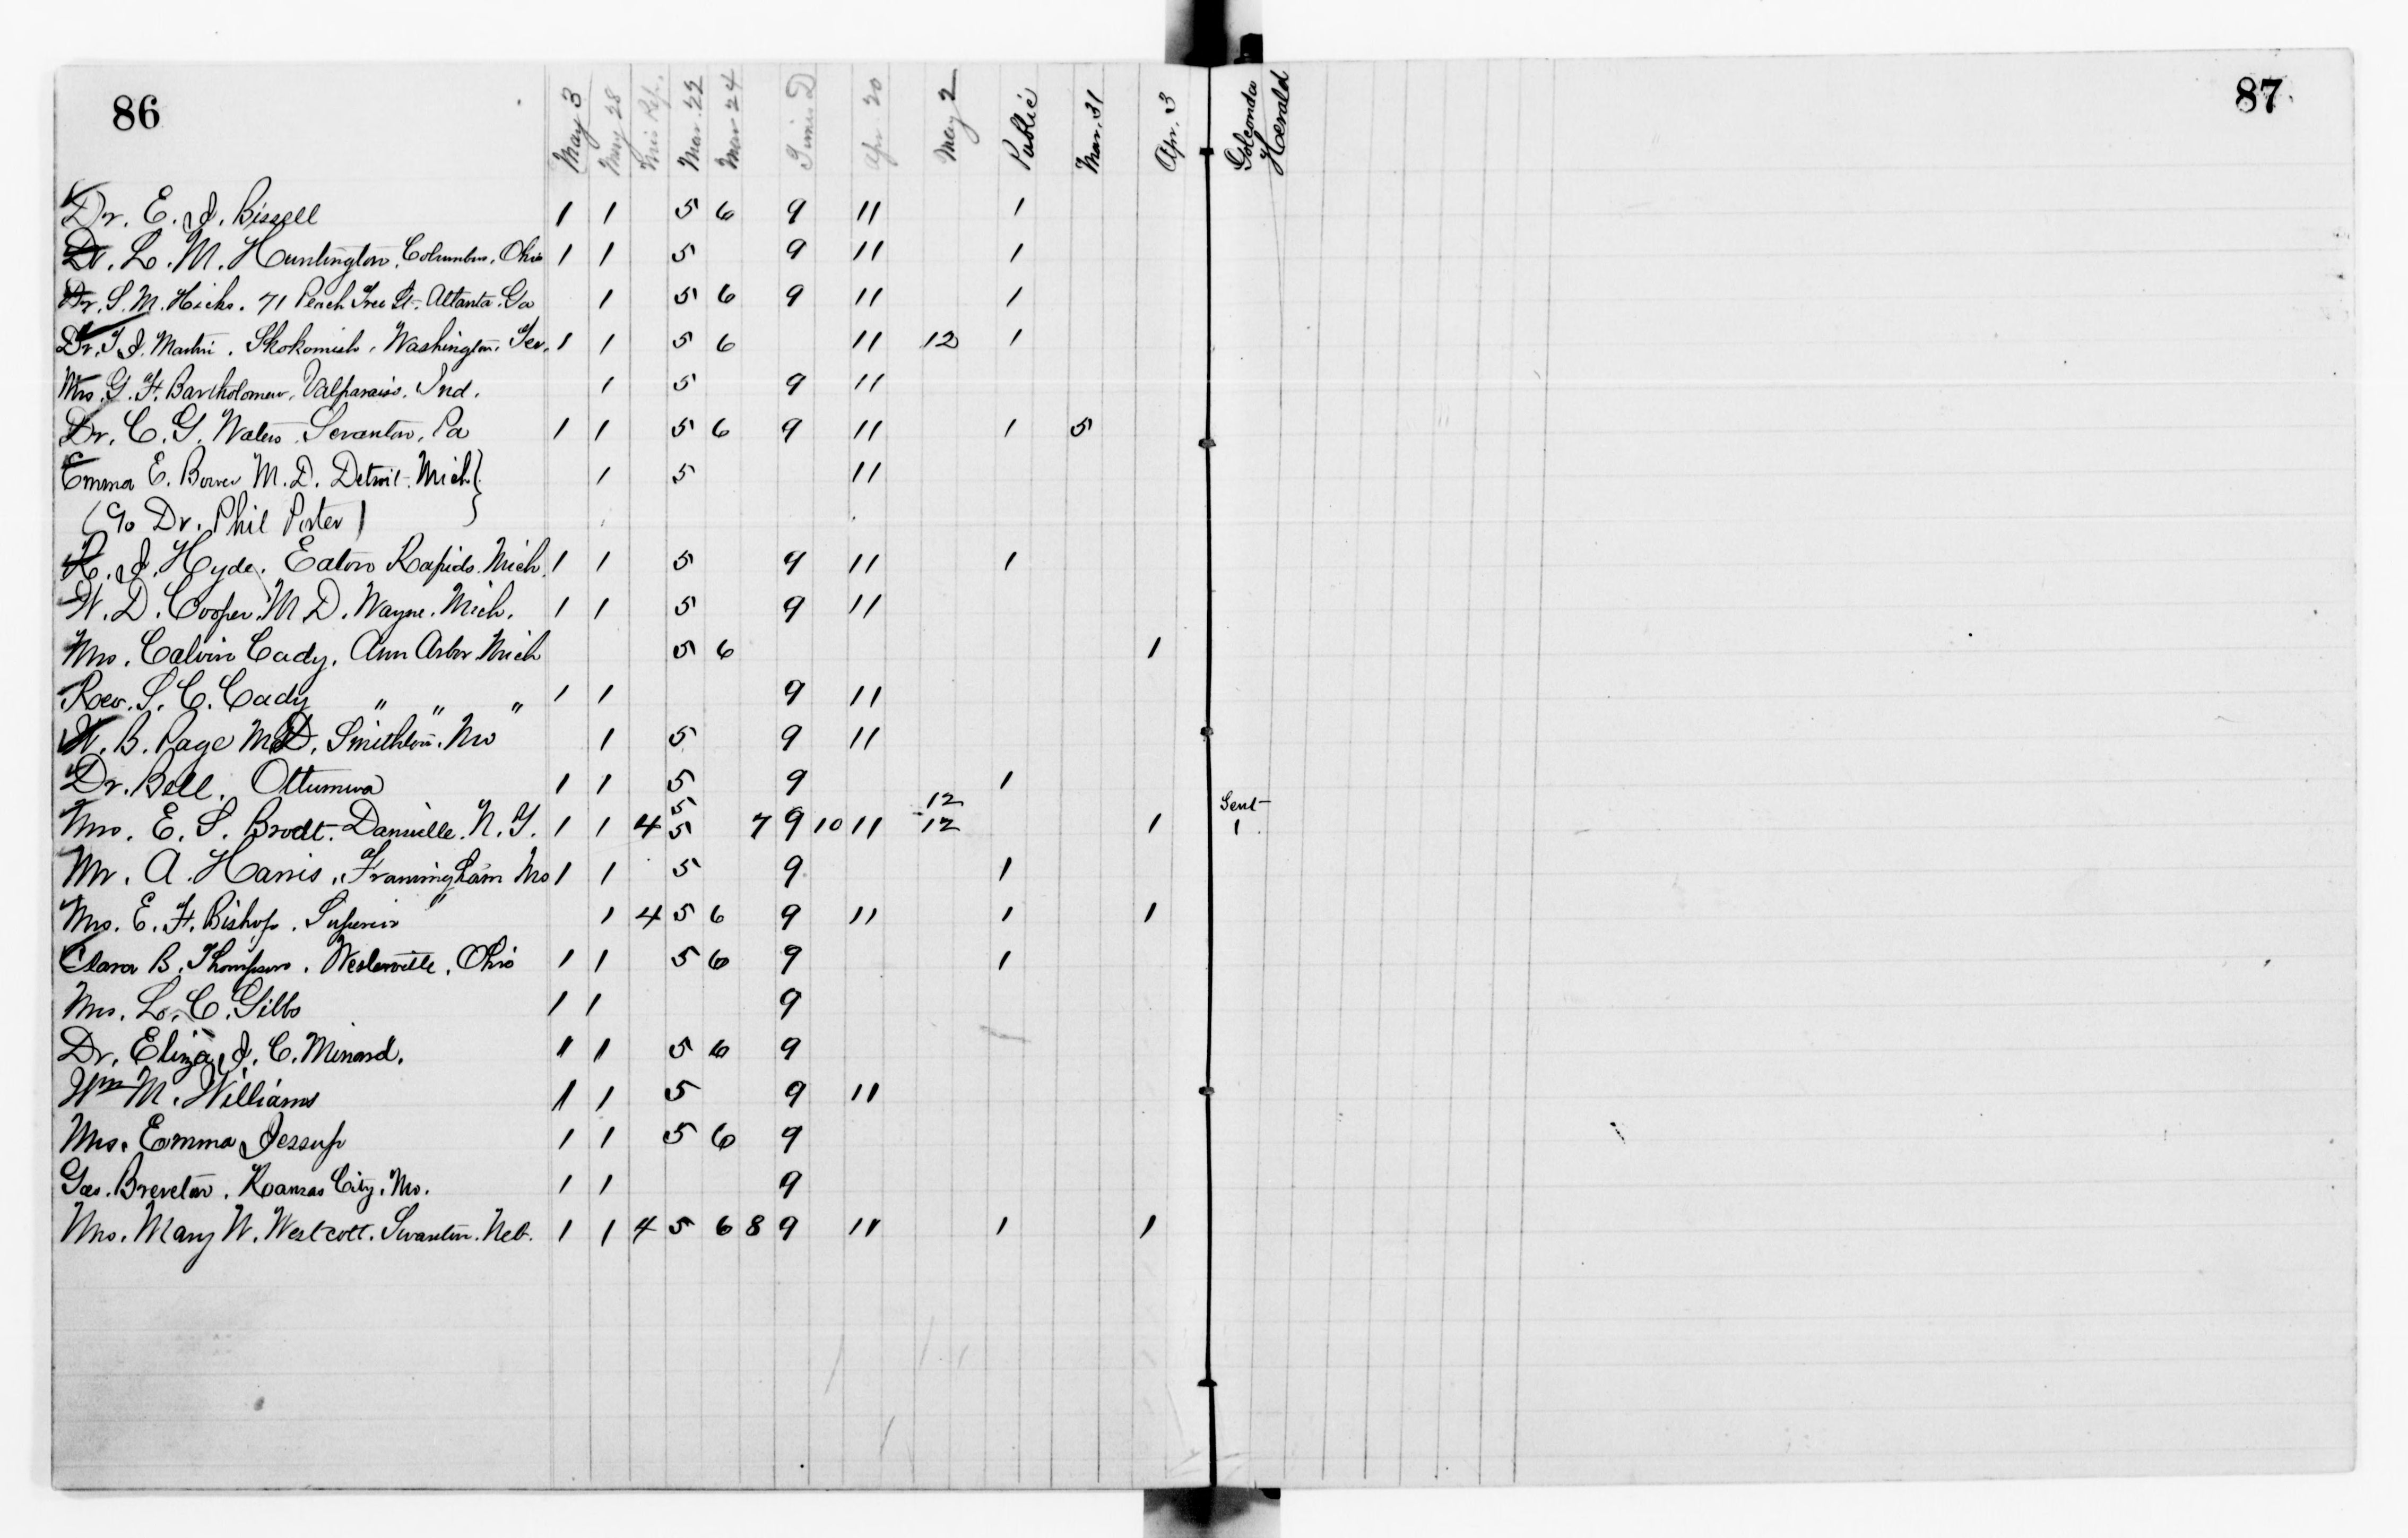 86
87
May 3 May 28 Mis Rep. Mar. 22 Mar 24 Times D Apr. 20 May 2 Public Mar. 31 Apr. 3 Golconda Herald
Dr. E. J. Bissell 1 1 5 6 9 11 1
Dr. L. M. Huntington, Columbus, Ohio 1 1 5 9 11 1
Dr. S. M. Hicks. 71 Peach Tree St. Atlanta Ga 1 5 6 9 11 1
Dr. T. J. Martin. Skokomish, Washington, Ter. 1 1 5 6 11 12 1
Mrs. G. F. Bartholomew, Valparaiso, Ind. 1 5 9 11
Dr. C. G. Waters Scranton, Pa 1 1 5 6 9 11 1 5
Emma E. Bower M. D. Detroit. Mich } 1 5 11
(c/o Dr. Phil Porter)
R. J. Hyde. Eaton Rapids. Mich. 1 1 5 9 11 1
W. D. Cooper. M D. Wayne. Mich. 1 1 5 9 11
Mrs. Calvin Cady, Ann Arbor Mich 5 6 1
Rev. S. C. Cady " " " 1 1 9 11
W. B. Page M D. Smithton. Mo 1 5 9 11
Dr. Bell. Ottumwa 1 1 5 9 1
5 12 Sent
Mrs. E. S. Brodt. Danville. N. Y. 1 1 4 5 7 9 10 11 12 1 1
Mr. A. Harris, Framingham Ms 1 1 5 9 1
Mrs. E. F. Bishop. Superior " 1 4 5 6 9 11 1 1
Clara B. Thompson. Westerville, Ohio 1 1 5 6 9 1
Mrs. L. C. Gibbs 1 1 9
Dr. Eliza J. C. Minard. 1 1 5 6 9
Wm M. Williams 1 1 5 9 11
Mrs. Emma Jessup 1 1 5 6 9
Geo. Brereton. Kansas City. Mo. 1 1 9
Mrs. Mary W. Westcott. Swanton. Neb. 1 1 4 5 6 8 9 11 1 1